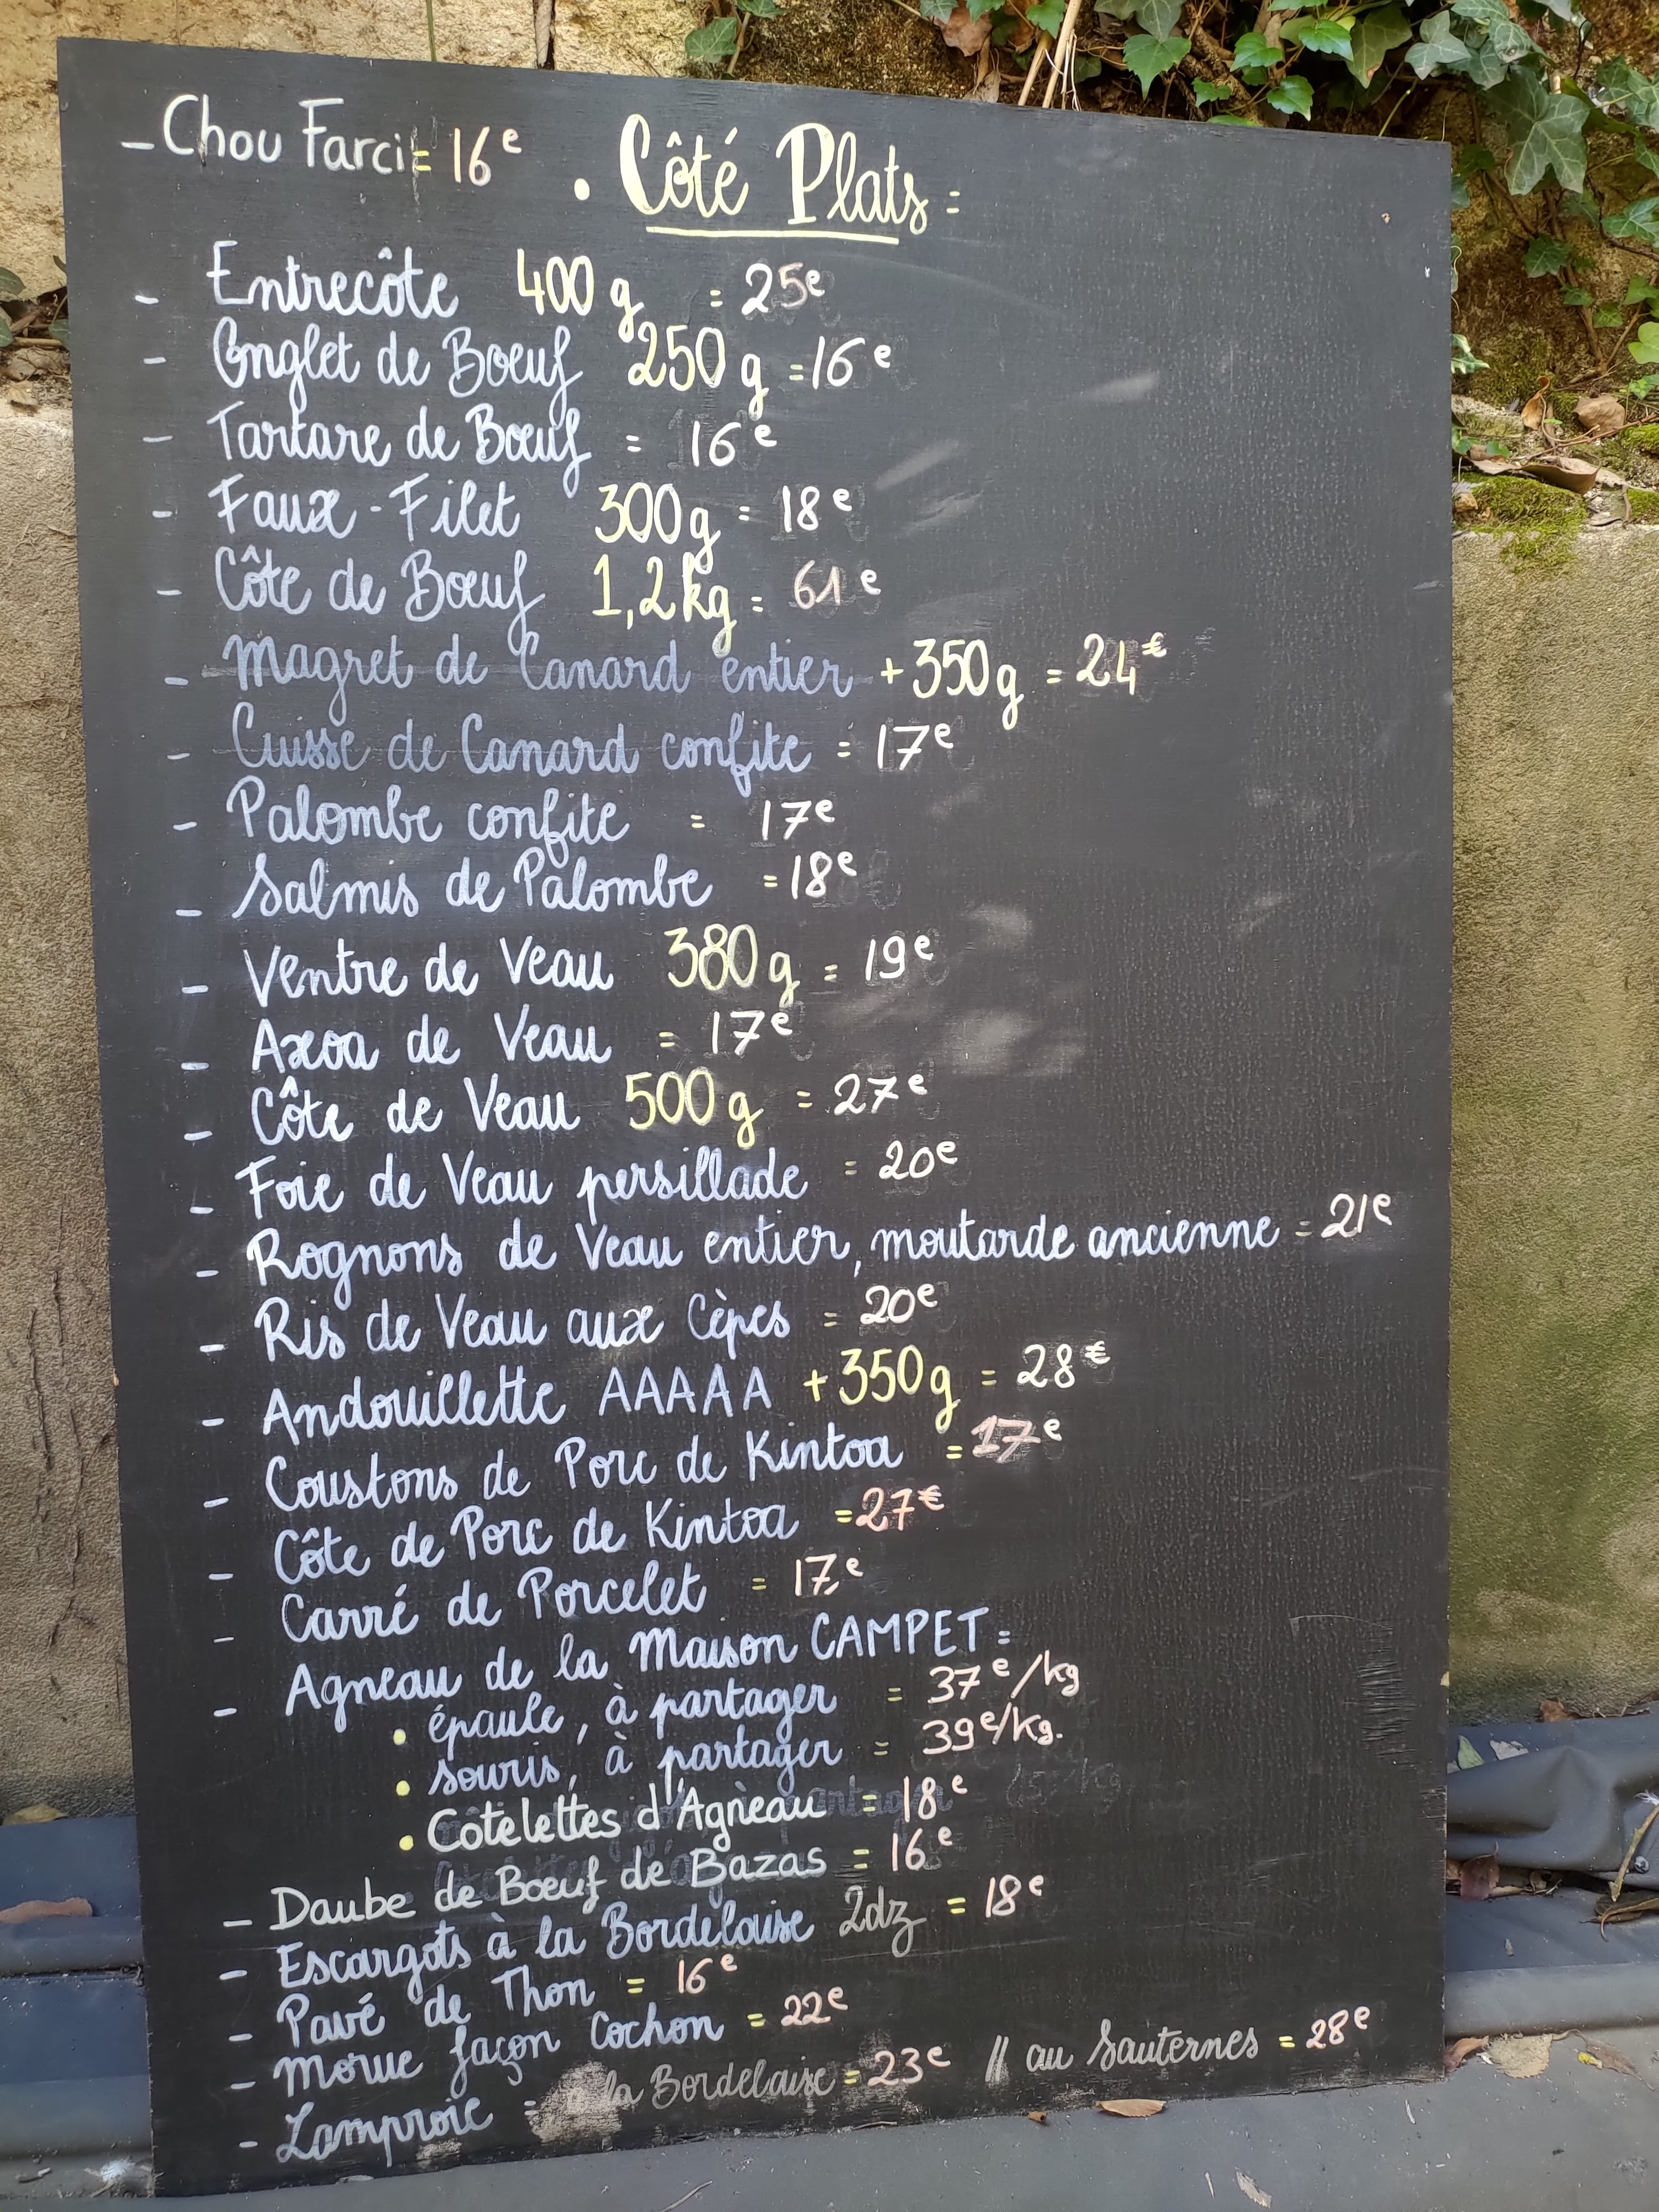 - Chou Farci = 16e
. Côté Plats =
- Entrecôte 400 g = 25e
- Onglet de Bœuf 250 g = 16e
- Tartare de Bœuf = 16e
- Faux-Filet 300g = 18e
- Côte de Bœuf 1,2kg = 61e
- Magret de Canard entier +350g = 24€
- Cuisse de Canard confite = 17e
- Palombe confite = 17e
- Salmis de Palombe = 18e
- Ventre de Veau 380g = 19e
- Axoa de Veau = 17e
- Côte de Veau 500g = 27e
- Foie de Veau persillade = 20e
- Rognons de Veau entier, moutarde ancienne = 21e
- Ris de Veau aux Cèpes = 20e
- Andouillette AAAAA +350g = 28€
- Coustons de Porc de Kintoa = 17e
- Côte de Porc de Kintoa = 27€
- Carré de Porcelet = 17,e
- Agneau de la Maison CAMPET =
• épaule, à partager = 37e/kg
• souris, à partager = 39e/kg.
• Cotelettes d'Agneau = 18e
- Daube de Bœuf de Bazas = 16e
- Escargots à la Bordelaise 2dz = 18e
- Pavé de Thon = 16e
- Morue façon Cochon = 22e
- Lamproie = à la Bordelaise = 23e // au Sauternes = 28e